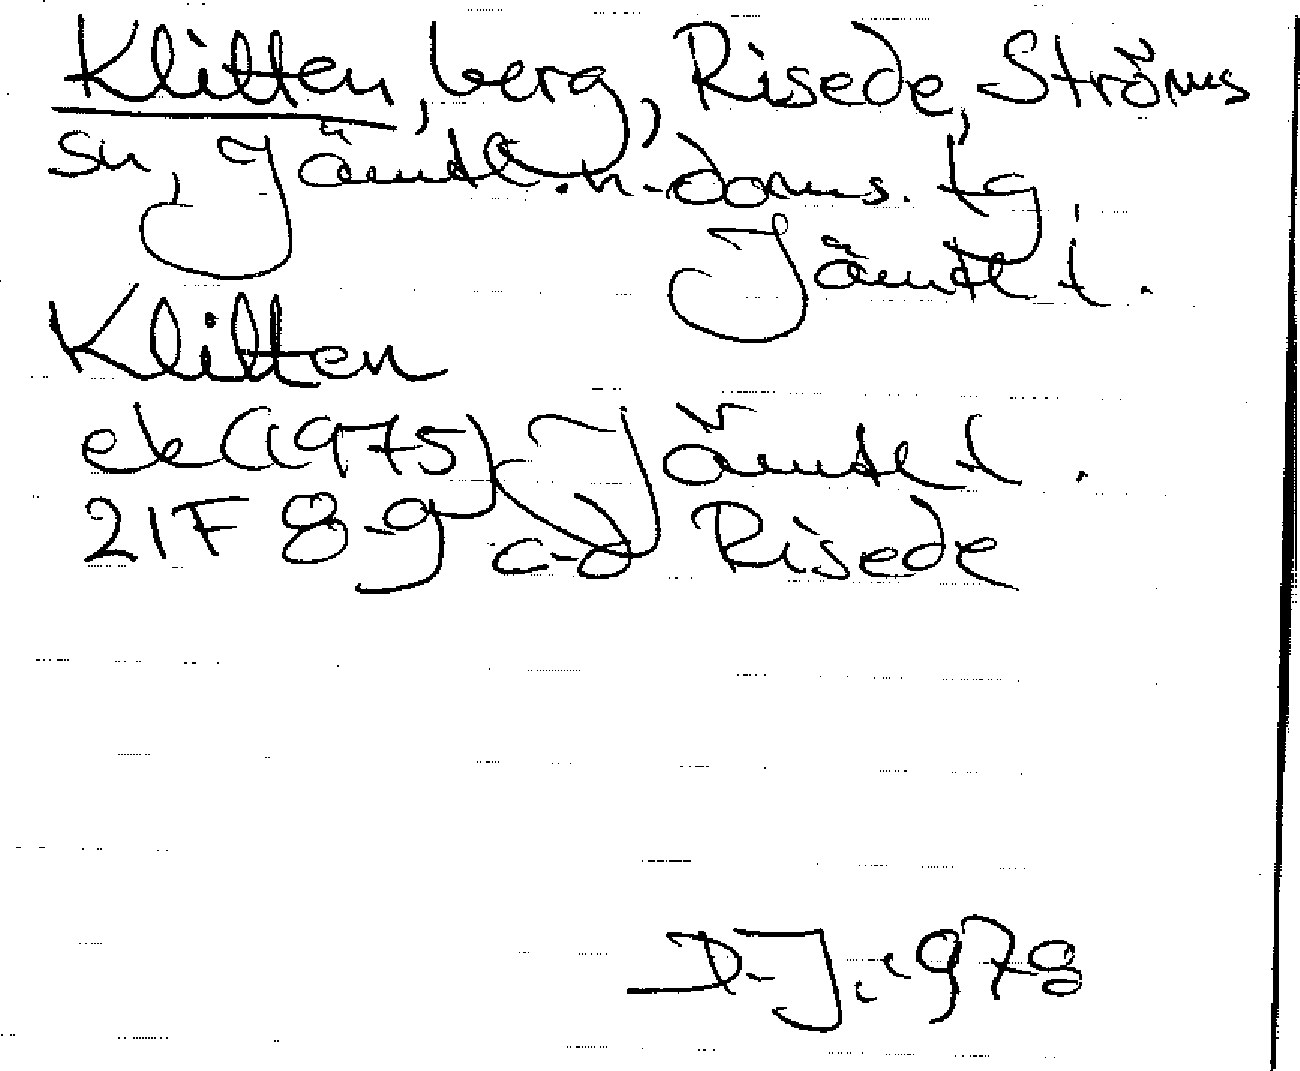 Klitten, berg, Risede, Ströms
sn, Jämtl. n. doms. tg
Jämtl l.
Klitten
ek (1975) Jämtl l.
21F 8-9 c-d Risede
D.J. 1978